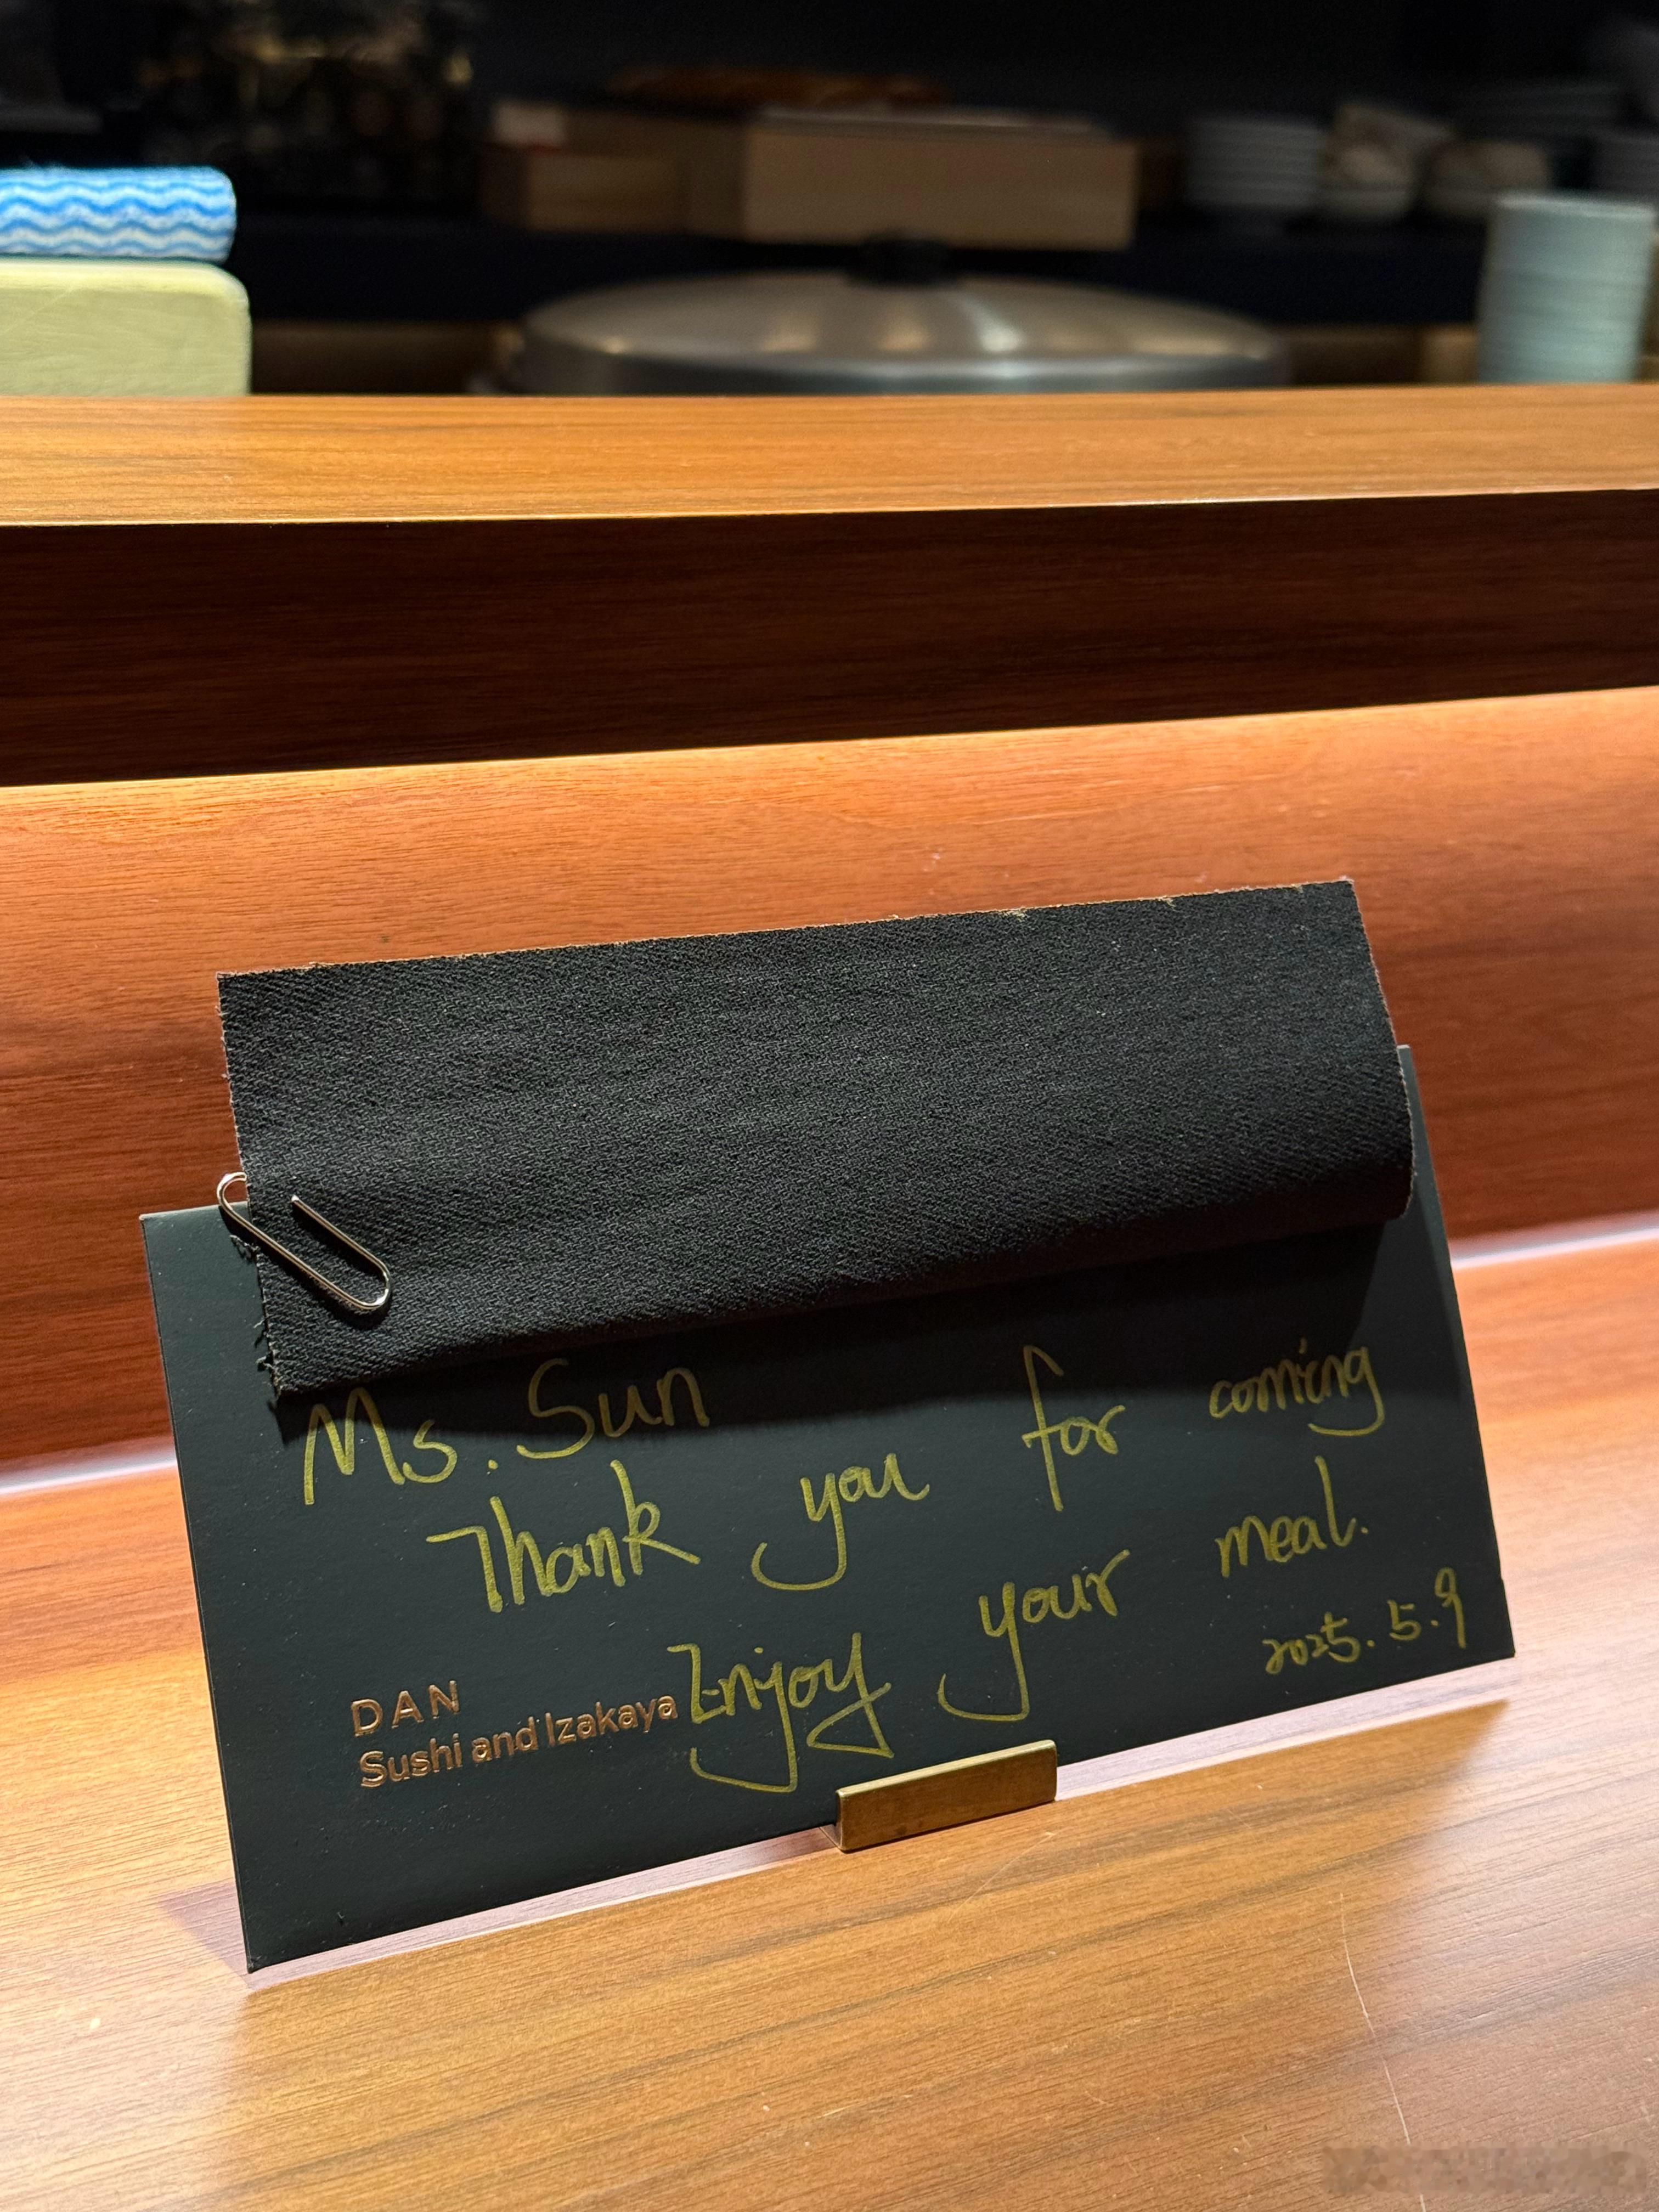 Ms. Sun
Thank you for coming
Enjoy your meal.
2025.5.9
DAN
Sushi and Izakaya